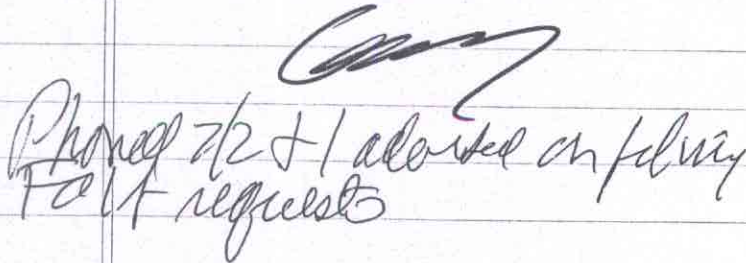 Phoned 7/2 & I advised on filing
FOIA requests